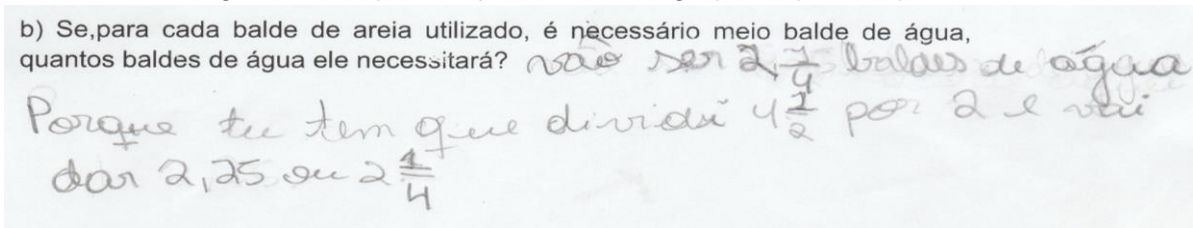 b) Se,para cada balde de areia utilizado, é necessário meio balde de água,
quantos baldes de água ele necessitará? vão ser 2 1/4 baldes de água
Porque tu tem que dividi 4 1/2 por 2 e vai
dar 2,25 ou 2 1/4